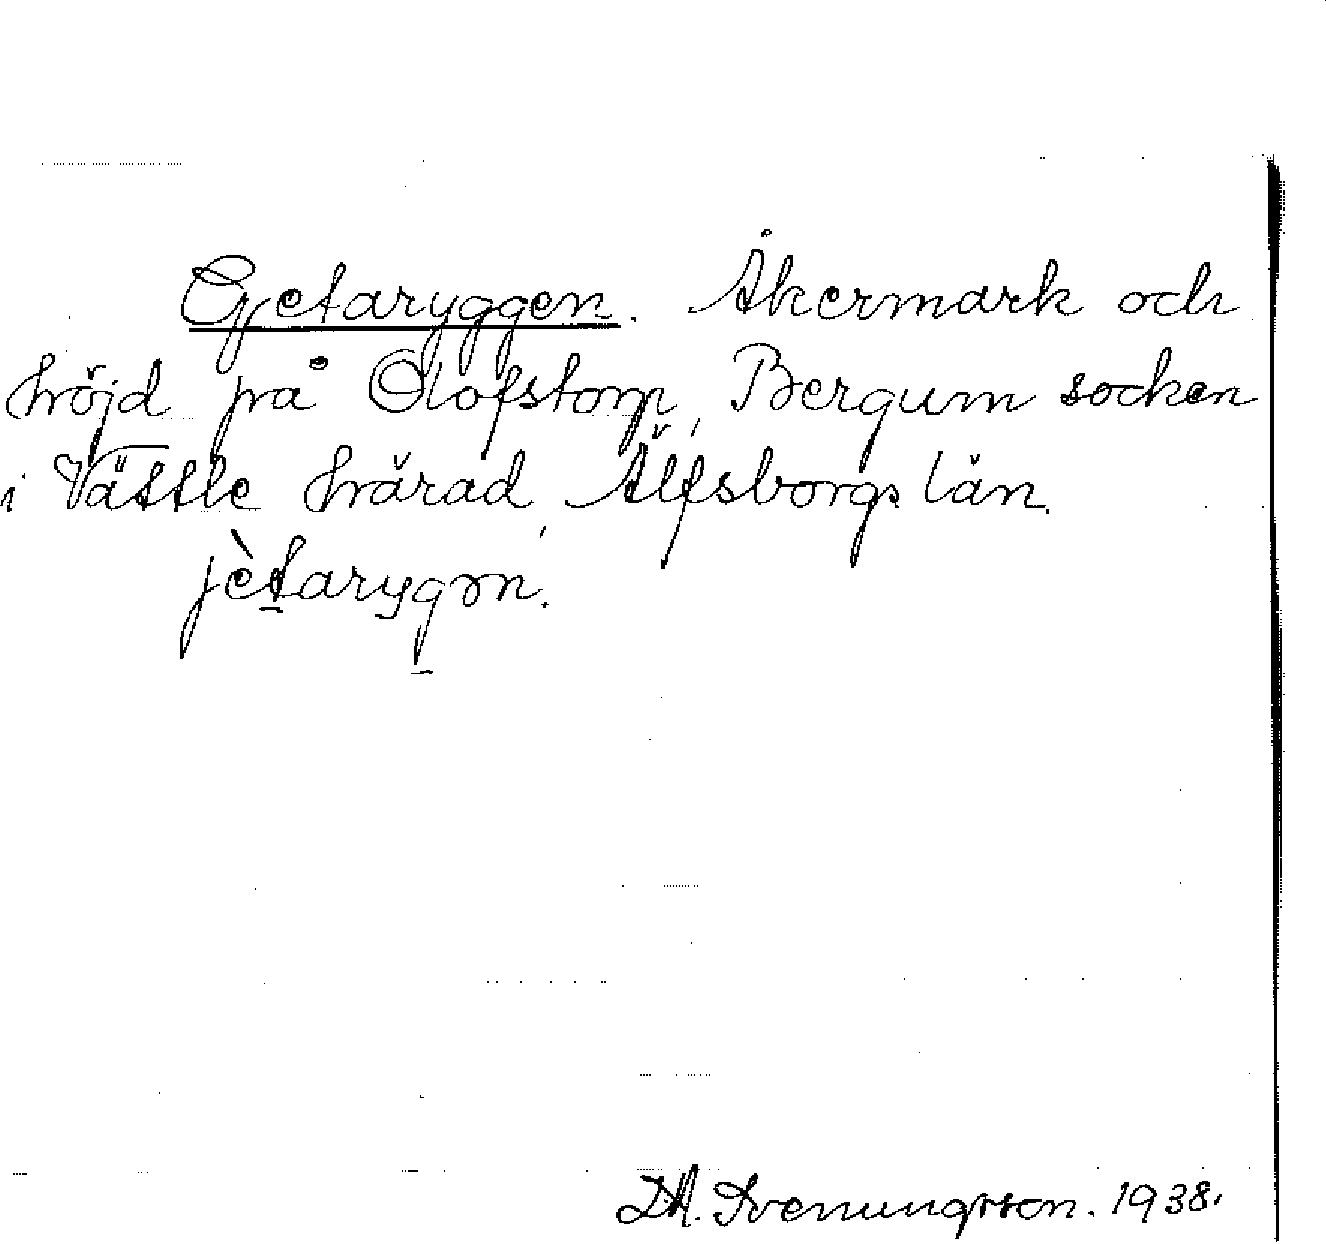 Getaryggen. Åkermark och
höjd på Olofstorp, Bergum socken
i Vättle härad, Älfsborgs län.
jètarygən.
Svenungsson. 1938.